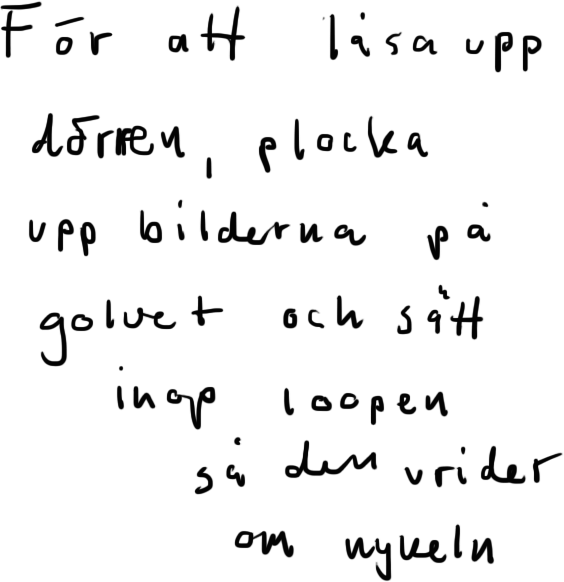 För att låsa upp
dörren, plocka
upp bilderna på
golvet och sätt
ihop loopen
så den vrider
om nykeln